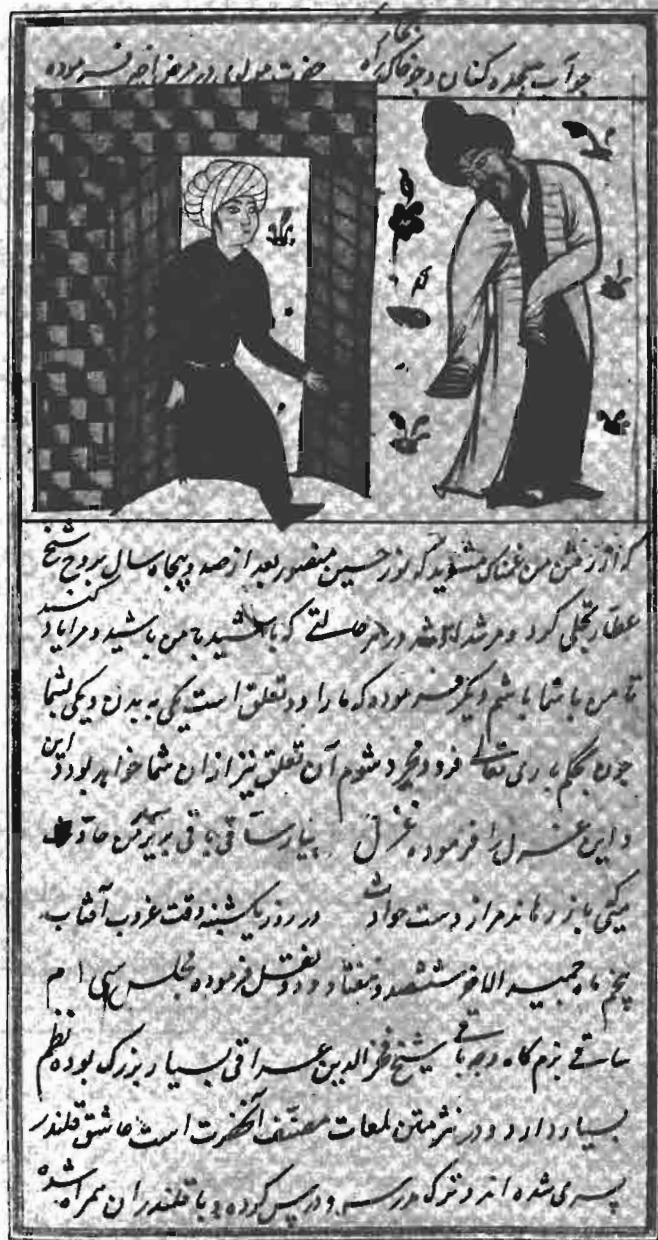 جو آب سجده کنان و جو خاک راه حضرت مولوی در مرض اخیر فرموده
که از رفتن من غمناک مشوید که نور حسین منصور بعد از صد و پنجاه سال بروح شیخ
عطار تجلی کرد و مرشد او شد در هر حالتے که باشید با من باشید و مرا یاد کنید
تا من با شما باشم دیگر فرموده که ما را دو تعلق است یکی به بدن و یکی بشما
چون بحکم باری تعالے فرد و مجرد شوم آن تعلق نیز از ان شما خواهد بود
و این غزل را فرموده غزل بیار ساقی باقی
از دست حوادث در روز یکشنبه وقت غروب آفتاب
پنجم ماه جمید الاخر ششصد و هفتاد و دو نقل فرموده مجلس سی ام
ساقے بزم گاه شیخ فخر الدین عراقی بسیار بزرگ بوده نظم
بسیار دارد و در نثر متن لمعات مصنّف آنحضرت است عاشق قلندر
پسری شده اند و ترک مدرسه و درس کرده و با قلندران همراه شده